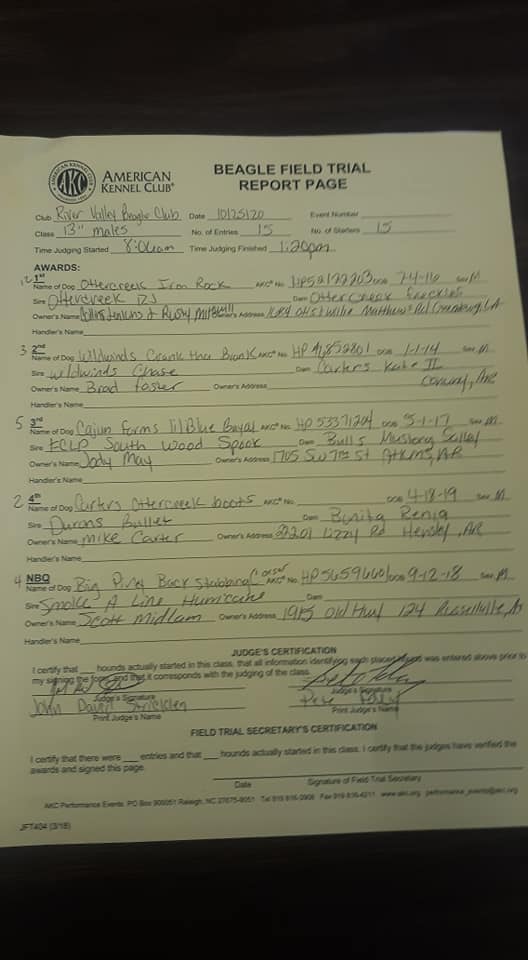 AKC
AMERICAN
KENNEL CLUB®
BEAGLE FIELD TRIAL
REPORT PAGE
Club River Valley Beagle Club Date 10/25/20 Event Number
Class 13" males No. of Entries 15 No. of Starters 15
Time Judging Started 8:00am Time Judging Finished 1:20pm
AWARDS:
1st
Name of Dog Ottercreek Iron Rock AKC® No. HP52122203 DOB 7-4-16 Sex M
Sire Ottercreek DJ Dam Ottercreek Freckles
Owner's Name Owner's Address
Handler's Name
3 2nd
Name of Dog Wildwinds Crank tha Brank AKC® No. HP DOB 1-1-14 Sex M
Sire Wildwinds Chase Dam Carters Kate II
Owner's Name Brad Foster Owner's Address Conway, AR
Handler's Name
5 3rd
Name of Dog Cajun Farms lil Blue Bayal AKC® No. HP 53371204 DOB 5-1-17 Sex M
Sire FCLP South Wood Spook Dam Bull's Mustang Salley
Owner's Name Jody May Owner's Address 1705 SW 7th St Atkins, AR
Handler's Name
2 4th
Name of Dog Carters Ottercreek boots AKC® No. DOB 4-18-19 Sex M
Sire Durons Bullet Dam Bonita
Owner's Name Mike Carter Owner's Address Lizzy Rd Hensley, AR
Handler's Name
4 NBQ
Name of Dog Big Piney Back Stabbing Cesar AKC® No. HP5659660 DOB 9-12-18 Sex M
Sire Smoke A Line Hurricane Dam
Owner's Name Scott Midlam Owner's Address 1915 Old Hwy 124 Russellville, Ar
Handler's Name
JUDGE'S CERTIFICATION
I certify that ___ hounds actually started in this class, that all information identifying each placed hound was entered above prior to
my signing the form, and that it corresponds with the judging of the class.
Judge's Signature Judge's Signature
John David Strickden
Print Judge's Name Print Judge's Name
FIELD TRIAL SECRETARY'S CERTIFICATION
I certify that there were ___ entries and that ___ hounds actually started in this class. I certify that the judges have verified the
awards and signed this page.
Date Signature of Field Trial Secretary
AKC Performance Events, PO Box 900051 Raleigh, NC 27675-9051 Tel 919 816-3908 Fax 919 816-4211 www.akc.org performance_events@akc.org
JFT404 (3/18)